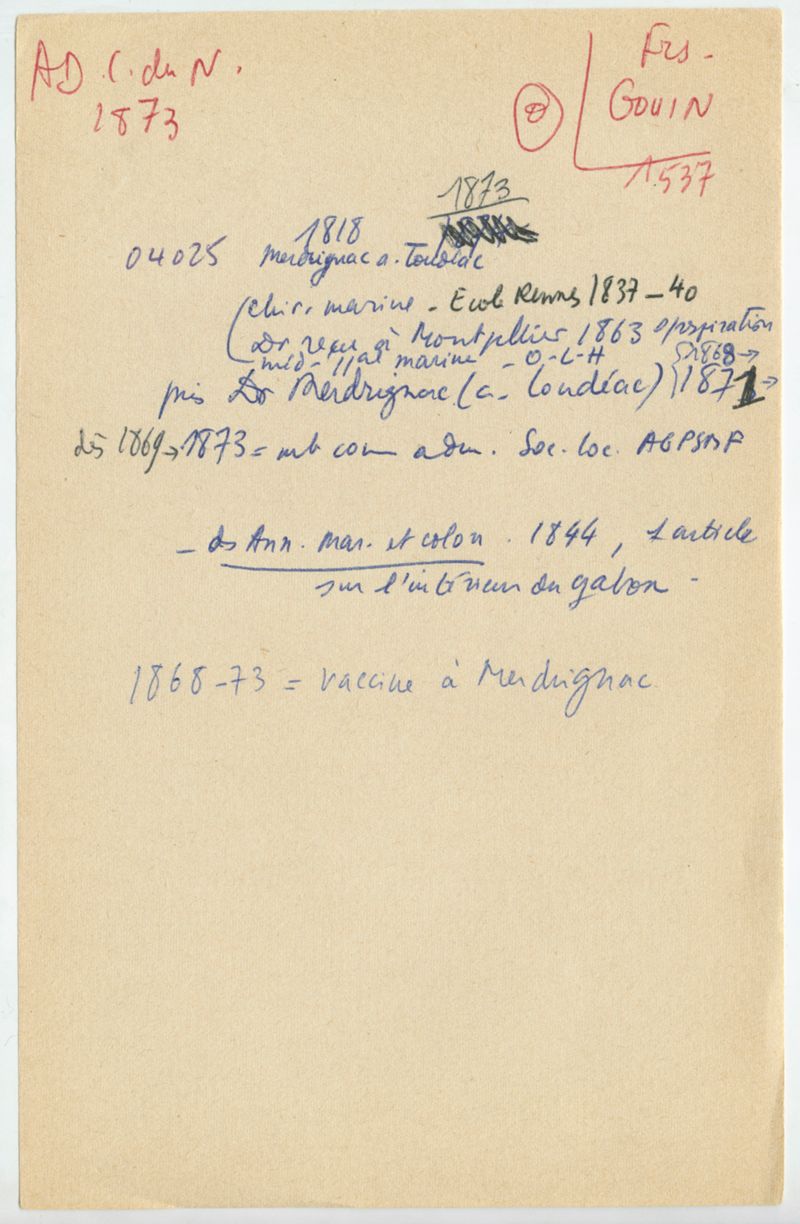 AD C. du N.
1873
Frs.
GOUIN
1537
1873
1818
04025 Merdrignac a. Loudéac
chir. marine - Ecole Rennes 1837-40
Dr reçu à Montpellier 1863
méd. marine - O-L-H 1868→
puis Dr Merdrignac (a. Loudéac) 1871→
dès 1869→1873 = mb com adm. Soc. loc. AGPSMF
- ds Ann. mar. et colon. 1844, 1 article
sur l'intérieur du gabon -
1868-73 = vaccine à Merdrignac